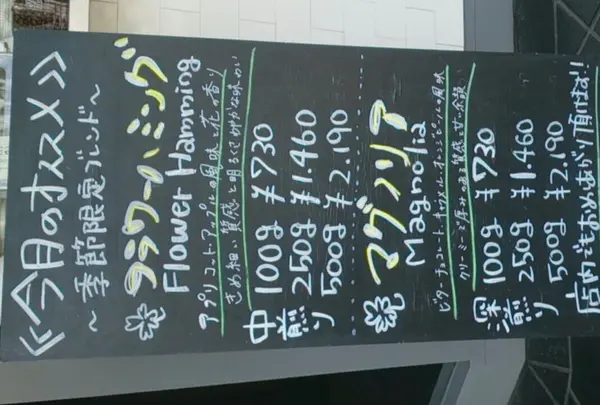 ≪今月のオススメ≫
～季節限定ブレンド～
フラワーハミング
Flower Hamming
アプリコット、アップルの風味、花の香り
きめ細い質感と明るくさわやかな味わい
中煎り
100g ¥730
250g ¥1.460
500g ¥2.190
マグノリア
Magnolia
ビターチョコート、キャラメル、オレンジピールの風味
クリーミーで厚みのある質感、甘い余韻
深煎り
100g ¥730
250g ¥1460
500g ¥2.190
店内でもおめしあがり頂けます!!